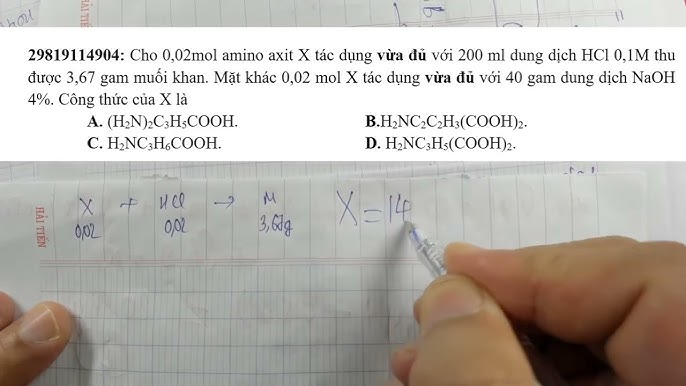 29819114904: Cho 0,02mol amino axit X tác dụng vừa đủ với 200 ml dung dịch HCl 0,1M thu
được 3,67 gam muối khan. Mặt khác 0,02 mol X tác dụng vừa đủ với 40 gam dung dịch NaOH
4%. Công thức của X là
A. (H₂N)₂C₃H₅COOH. B.H₂NC₂C₂H₃(COOH)₂.
C. H₂NC₃H₆COOH. D. H₂NC₃H₅(COOH)₂.
X + HCl → M
0,02 0,02 3,67g
X = 14
HẢI TIẾN